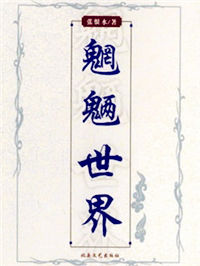 張恨水/著
魍魉世界
北岳文艺出版社